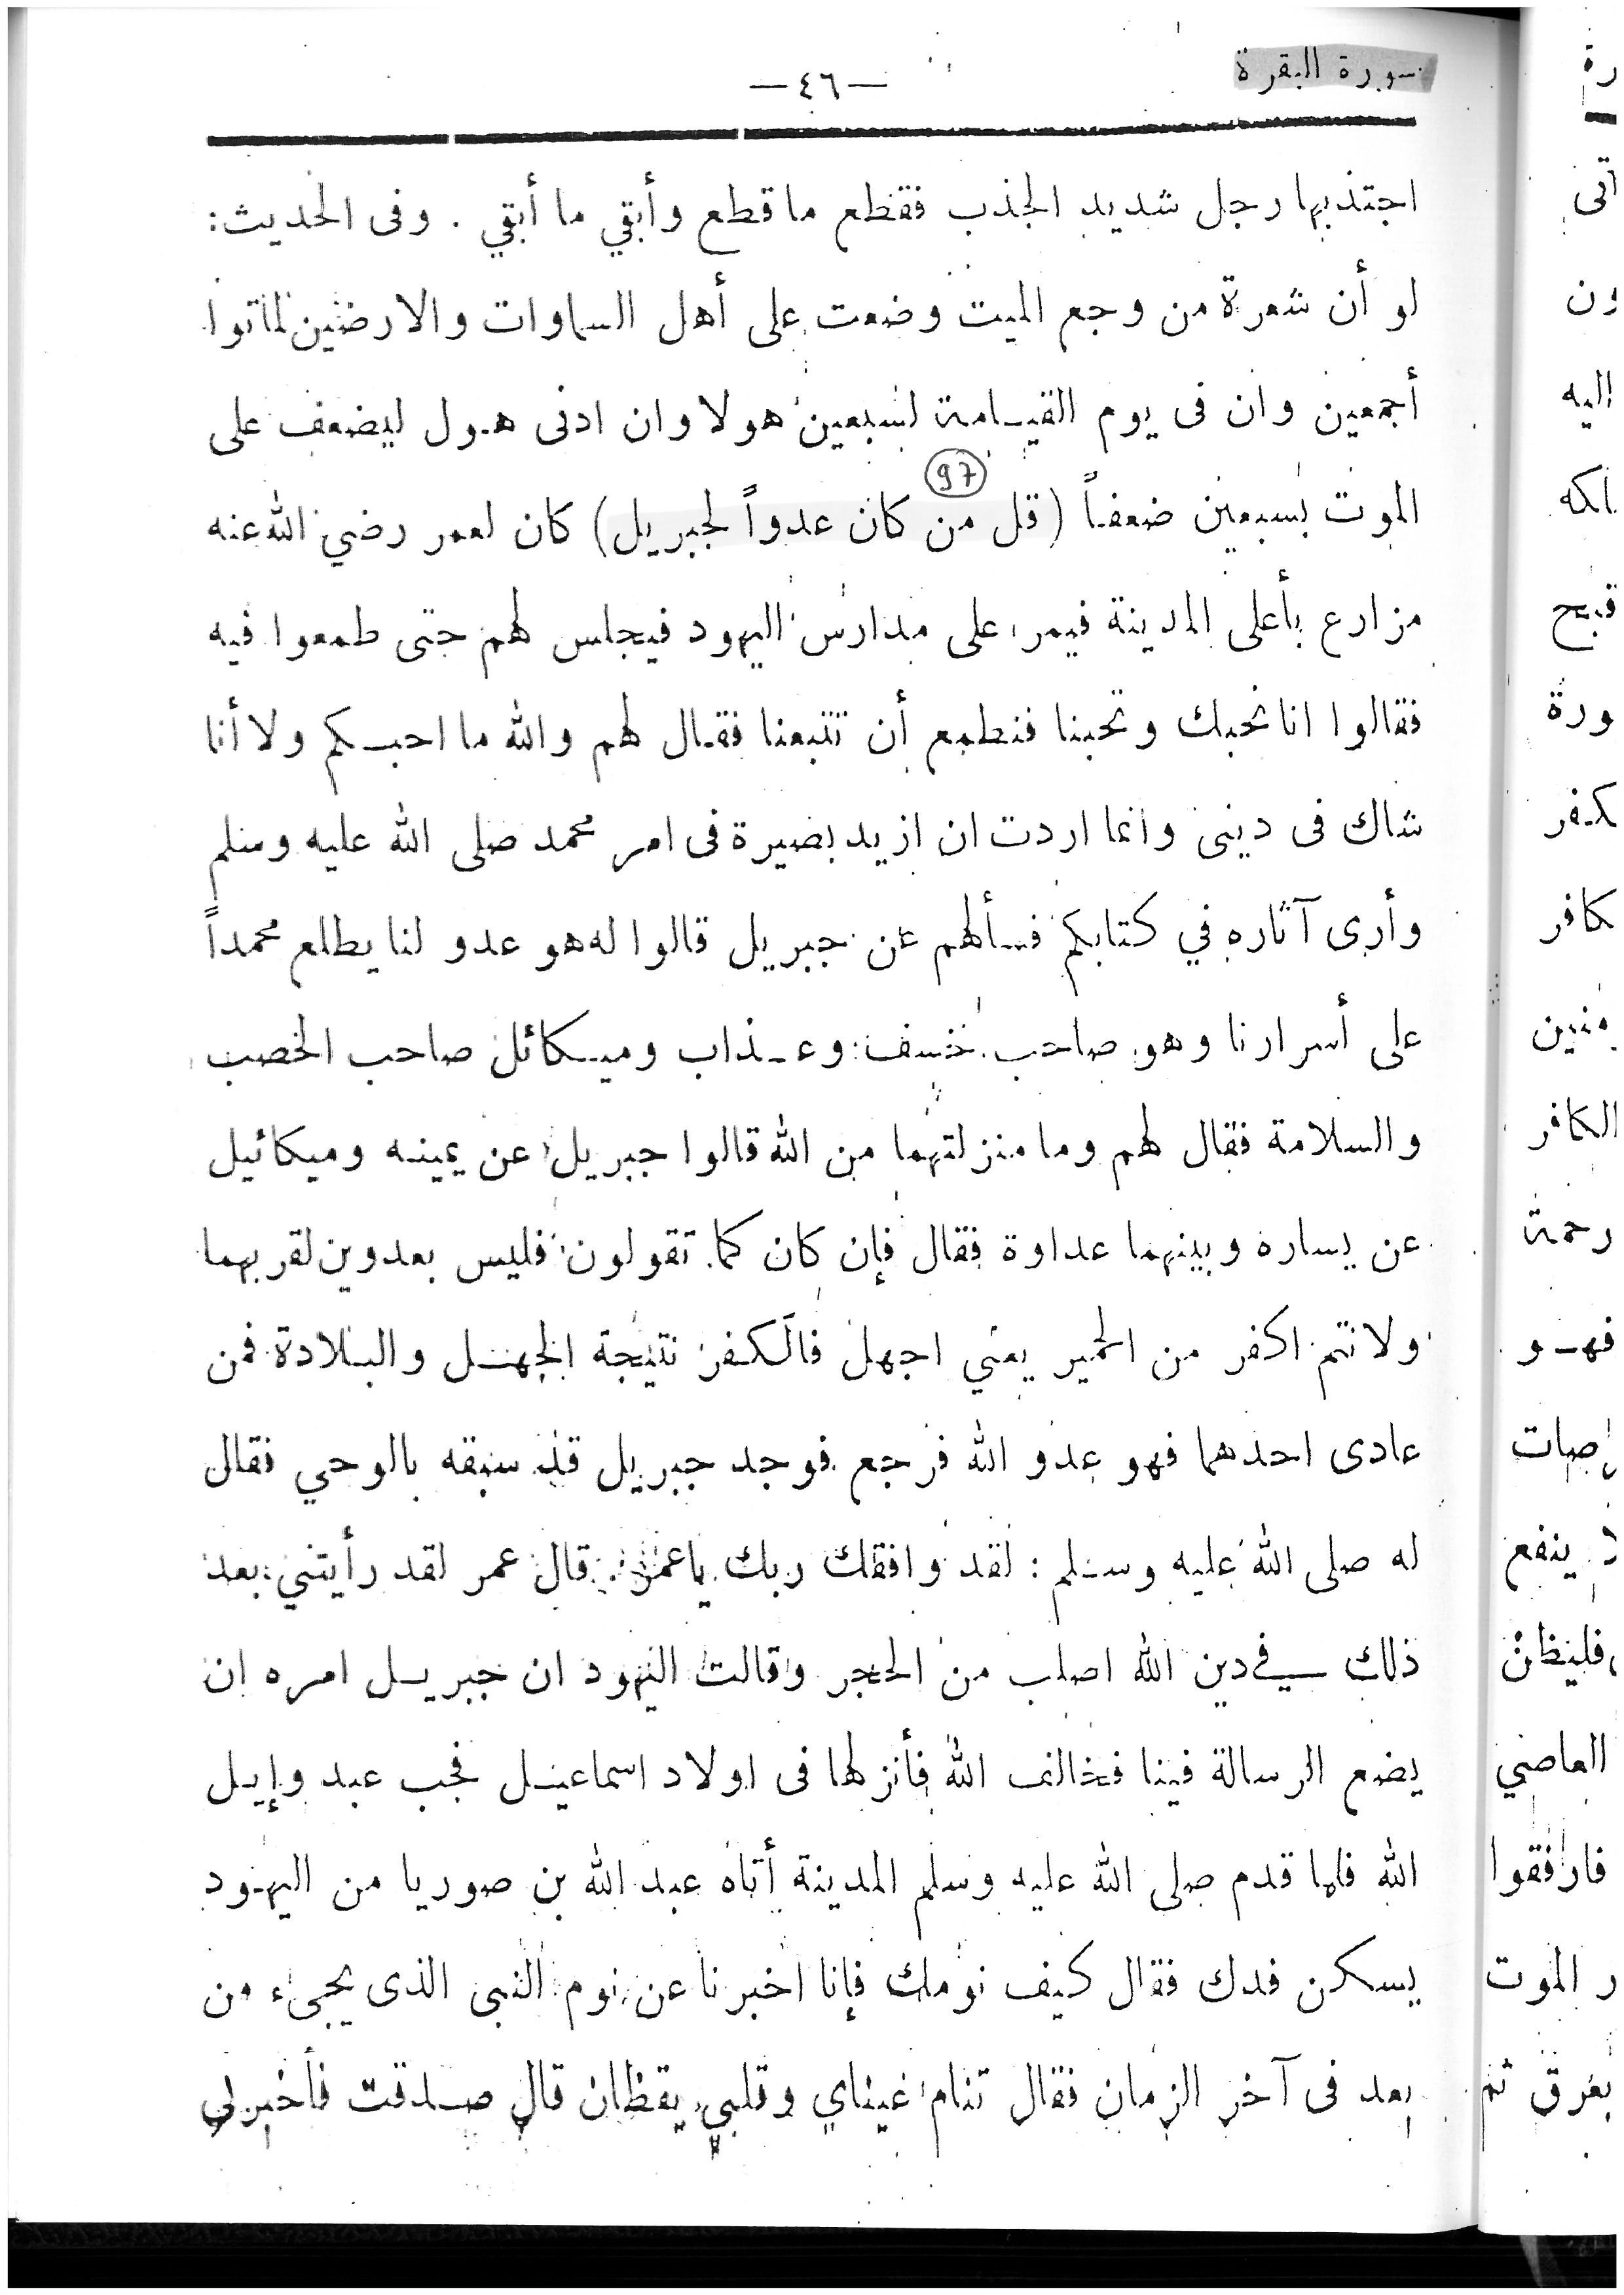 سورة البقرة
—٤٦—
اجتذبها رجل شديد الجذب فقطع ما قطع وأبقي ما أبقي . وفى الحديث :
لو أن شعرة من وجع الميت وضعت على أهل السماوات والارضين لماتوا
أجمعين وان فى يوم القيامة لسبعين هولا وان ادنى هول ليضعف على
97
الموت بسبعين ضعفاً (قل من كان عدواً لجبريل) كان لعمر رضي الله عنه
مزارع بأعلى المدينة فيمر على مدارس اليهود فيجلس لهم حتى طمعوا فيه
فقالوا انا نحبك وتحبنا فنطمع أن تتبعنا فقال لهم والله ما احبكم ولا أنا
شاك فى دينى وانما اردت ان ازيد بصيرة فى امر محمد صلى الله عليه وسلم
وأرى آثاره في كتابكم فسألهم عن جبريل قالوا له هو عدو لنا يطلع محمداً
على أسرارنا وهو صاحب خسف وعذاب وميكائل صاحب الخصب
والسلامة فقال لهم وما منزلتهما من الله قالوا جبريل عن يمينه وميكائيل
عن يساره وبينهما عداوة فقال فإن كان كما تقولون فليس بعدوين لقربهما
ولانتم اكفر من الحمير يعني اجهل فالكفر نتيجة الجهل والبلادة فمن
عادى احدهما فهو عدو الله فرجع فوجد جبريل قد سبقه بالوحي فقال
له صلى الله عليه وسلم : لقد وافقك ربك ياعمر . قال عمر لقد رأيتني بعد
ذلك في دين الله اصلب من الحجر وقالت اليهود ان جبريل امره ان
يضع الرسالة فينا فخالف الله فأنزلها فى اولاد اسماعيل فجب عبد وإيل
الله فلما قدم صلى الله عليه وسلم المدينة أتاه عبد الله بن صوريا من اليهود
يسكن فدك فقال كيف نومك فإنا اخبرنا عن نوم النبى الذى يجىء من
بعد فى آخر الزمان فقال تنام عيناي وقلبي يقظان قال صدقت فأخبرني
رة
اتى
ون
اليه
لكه
قبح
ورة
كفر
كافر
منين
الكافر
رحمة
فهو
صات
ينفع
فلينظر
العاصي
فارافقوا
ر الموت
بغرق ثم